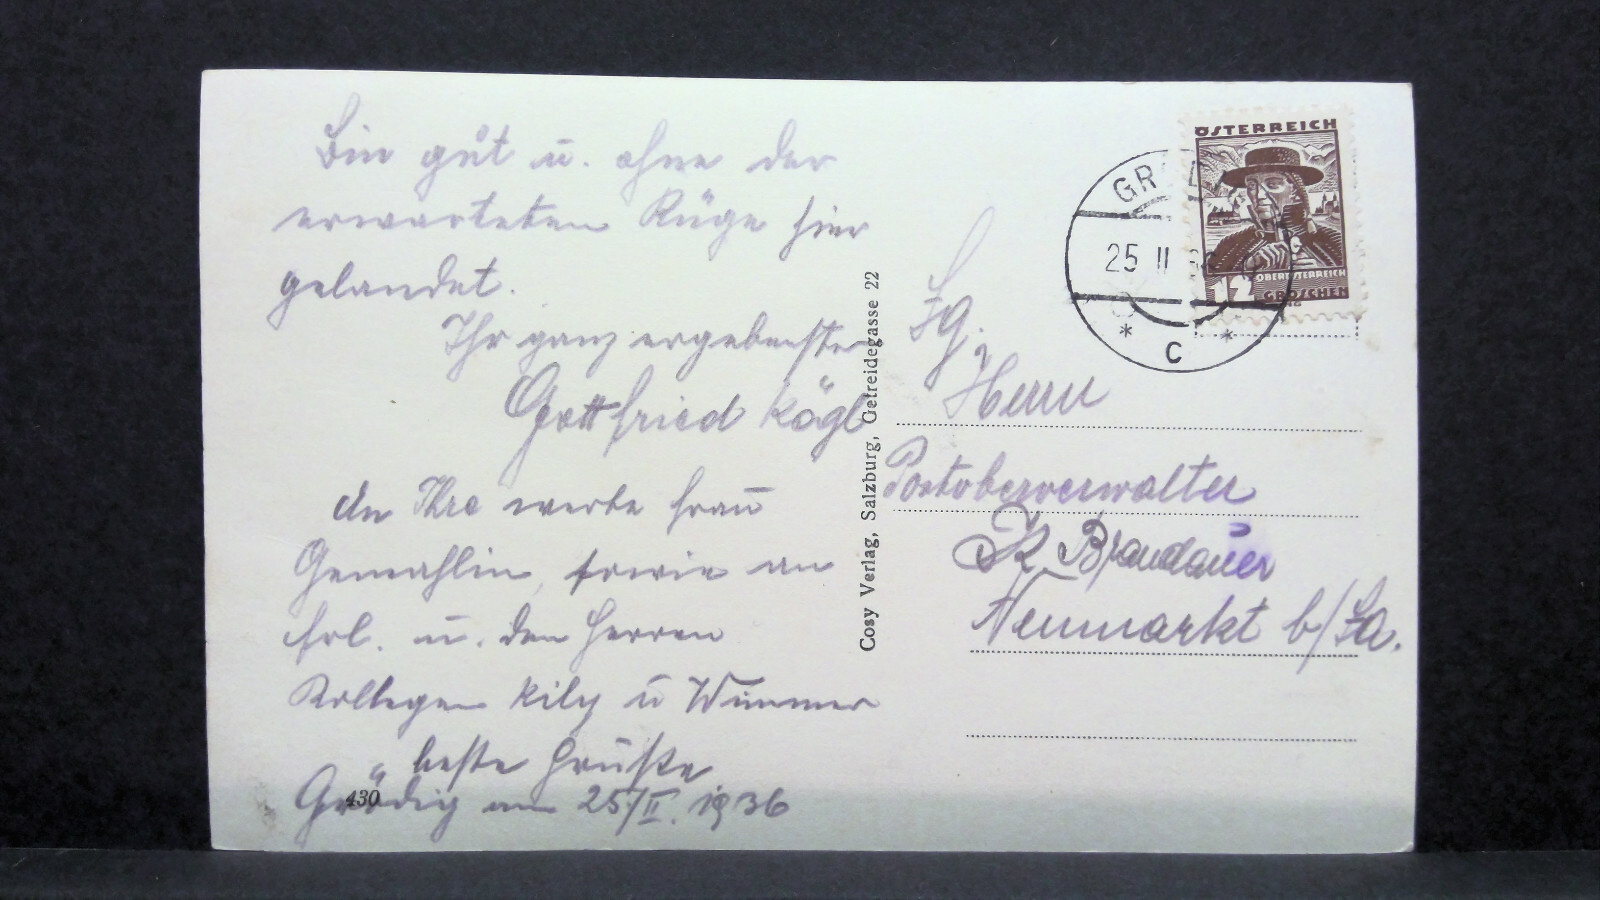 Bin gut u. ohne der
erwarteten Rüge hier
gelandet.
Ihr ganz ergebenster
Gottfried Kögl
An Ihre werte Frau
Gemahlin, sowie an
Frl. u. den Herren
Kollegen u Wimmer
beste Grüße
Grödig am 25/II. 1936
430
Cosy Verlag, Salzburg, Getreidegasse 22
ÖSTERREICH
12
OBERÖSTERREICH
GROSCHEN
GR
25 II
C
Herrn
Postoberverwalter
Brandauer
Neumarkt b/Sa.